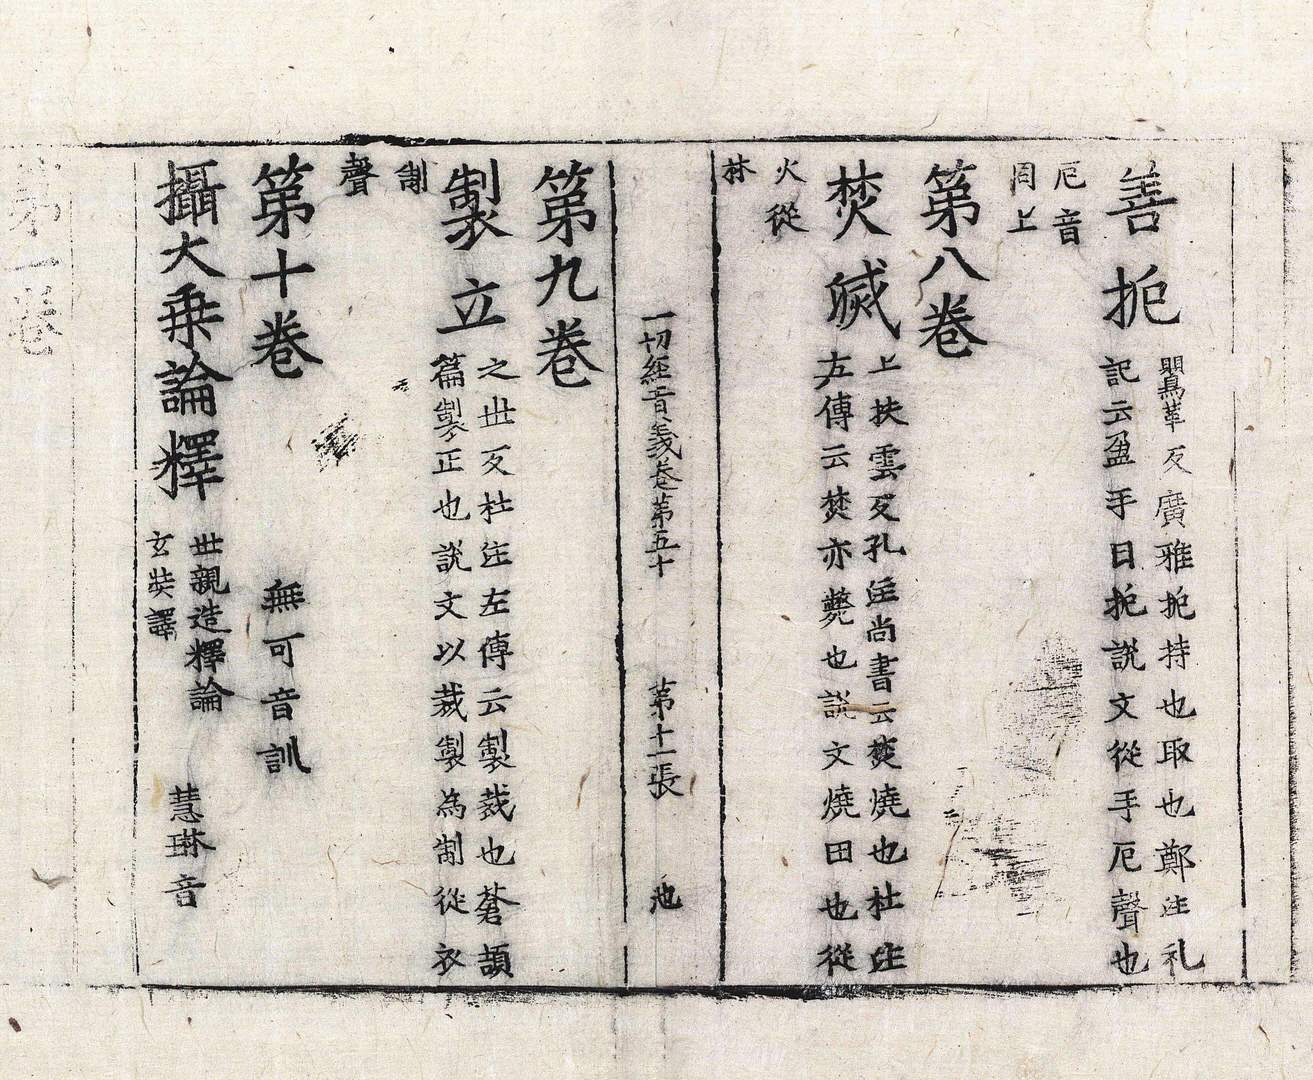 善扼
鷖革反廣雅扼持也取也鄭注礼
記云盈手曰扼說文從手厄聲也
厄音
同上
第八卷
焚
上扶雲反孔注尚書云焚燒也杜注
左傳云焚亦斃也說文燒田也從
火從
林
一切經音義卷第五十 第十一張 池
第九卷
製立
之世反杜注左傳云製裁也蒼頡
篇製正也說文以裁製為制從衣
制
聲
第十卷 無可音訓
攝大乗論釋
世親造釋論
玄奘譯
慧琳音
第一卷